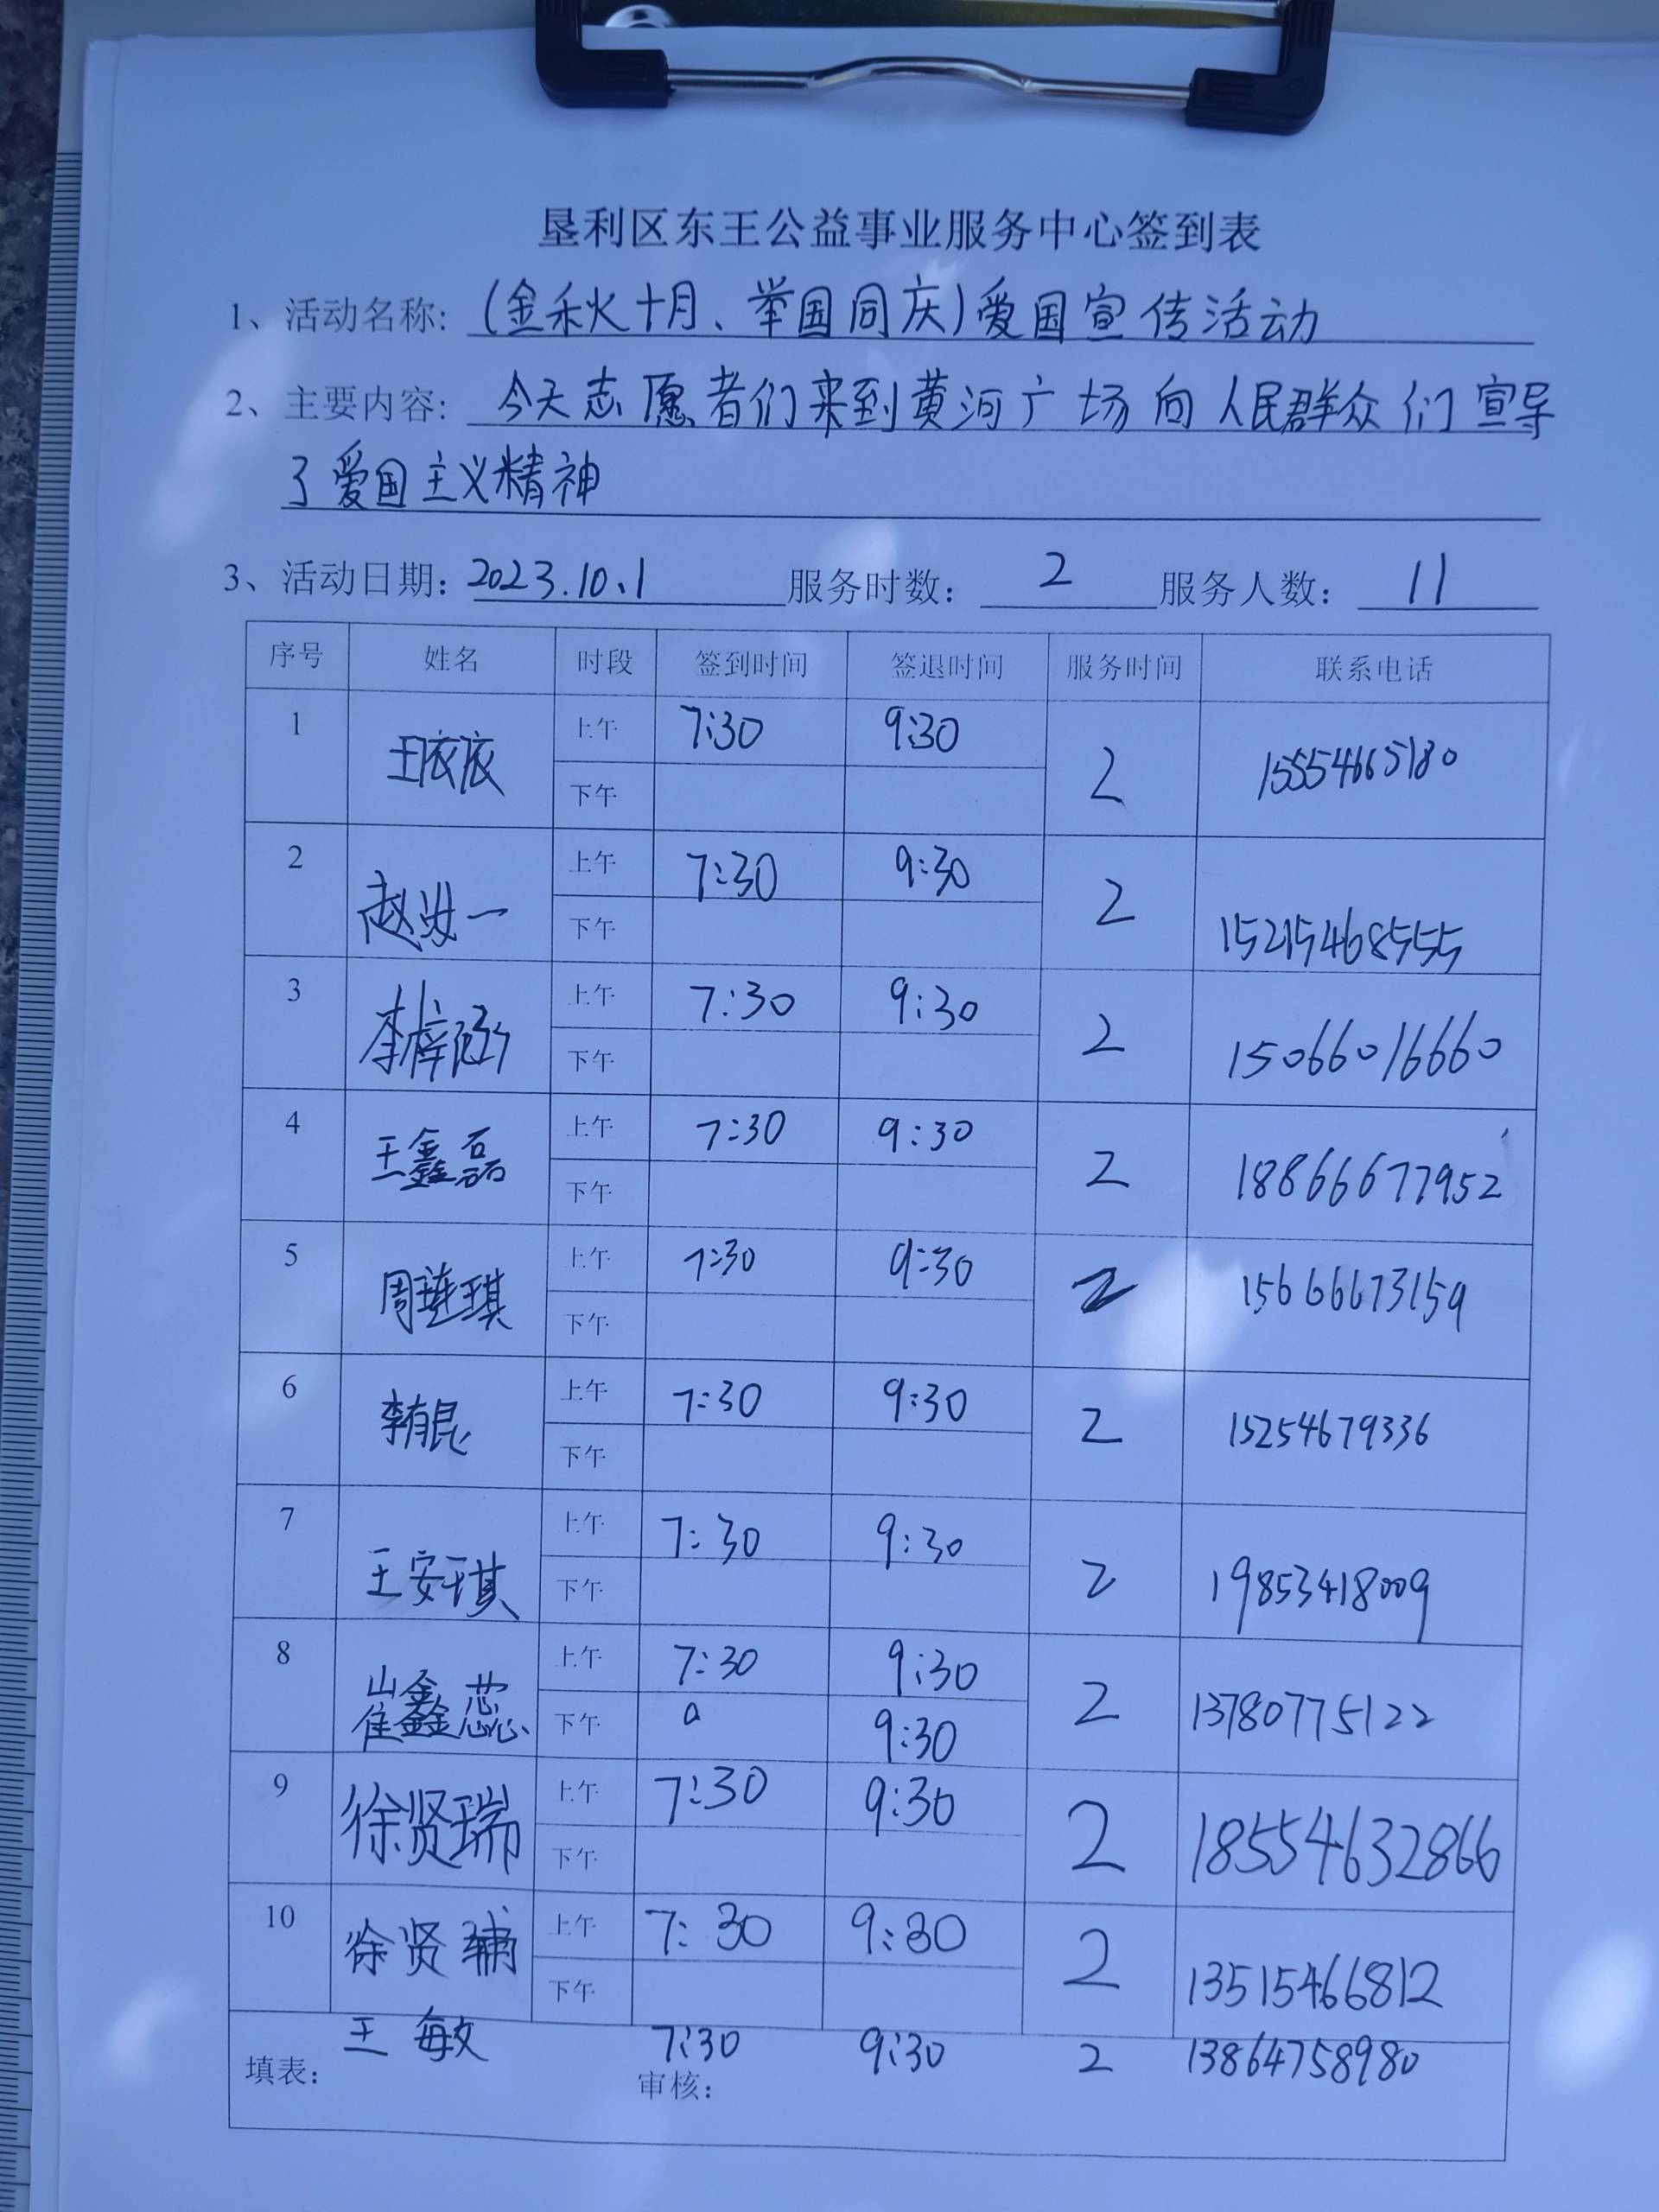 垦利区东王公益事业服务中心签到表
1、活动名称: (金秋十月、举国同庆)爱国宣传活动
2、主要内容: 今天志愿者们来到黄河广场向人民群众们宣导
了爱国主义精神
3、活动日期: 2023.10、1 服务时数: 2 服务人数: 11
序号 姓名 时段 签到时间 签退时间 服务时间 联系电话
1 王依依 上午 7:30 9:30 2 15554665180
下午
2 赵 一 上午 7:30 9:30 2 15215468555
下午
3 李梓涵 上午 7:30 9:30 2 15066016660
下午
4 王鑫磊 上午 7:30 9:30 2 18866677952
下午
5 周琪 上午 7:30 9:30 2 15666673159
下午
6 李有昆 上午 7:30 9:30 2 15254679336
下午
7 王安琪 上午 7:30 9:30 2 19853418009
下午
8 崔鑫蕊 上午 7:30 9:30 2 13780775122
下午 9:30
9 徐贤瑞 上午 7:30 9:30 2 18554632866
下午
10 徐贤辅 上午 7:30 9:30 2 13515466812
下午
王敏 7:30 9:30 2 13864758980
填表: 审核: